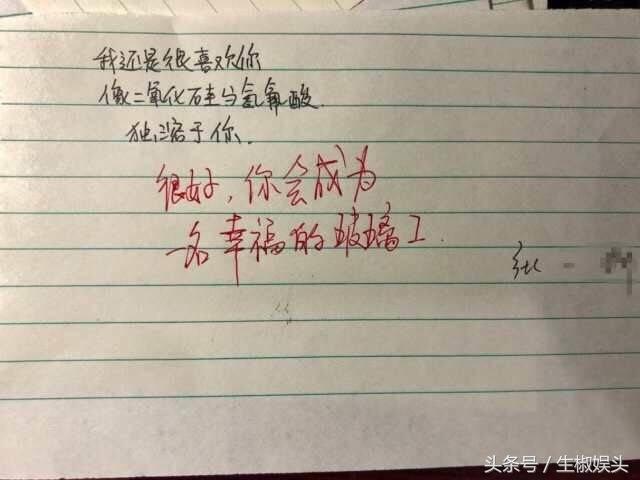 我还是很喜欢你
像二氧化硅与氢氟酸.
独溶于你.
很好，你会成为
一名幸福的玻璃工.
头条号／生椒娱头